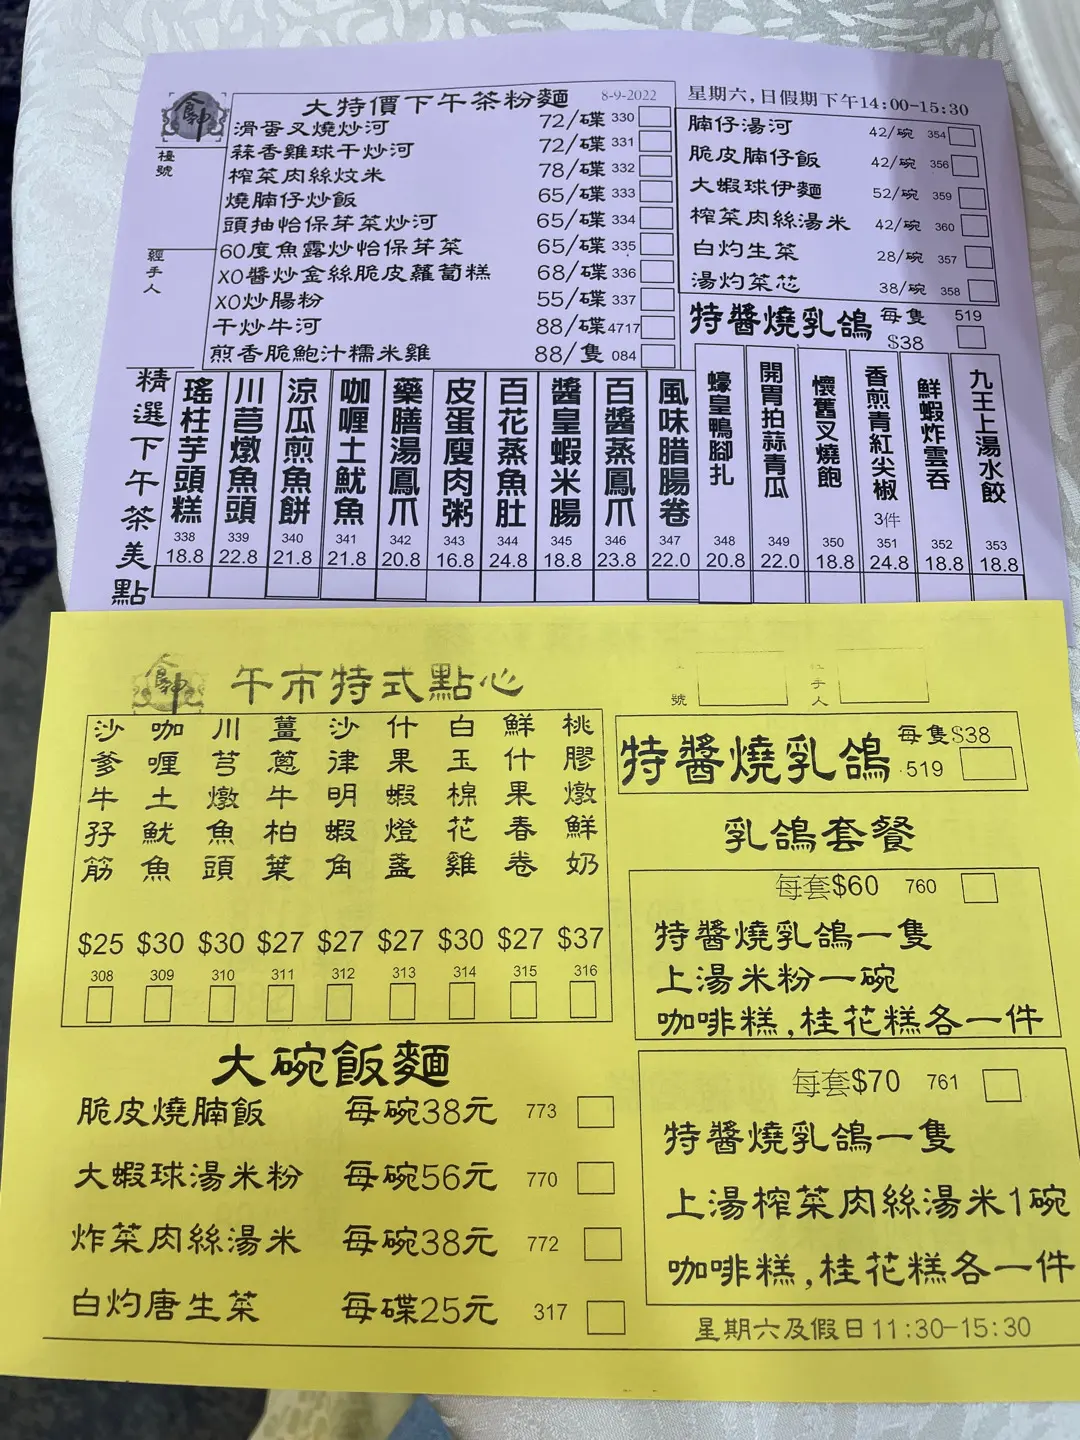 食神
大特價下午茶粉麵
8-9-2022
星期六,日假期下午14:00-15:30
檯號
經手人
滑蛋叉燒炒河 72/碟 330
蒜香雞球干炒河 72/碟 331
榨菜肉絲炆米 78/碟 332
燒腩仔炒飯 65/碟 333
頭抽怡保芽菜炒河 65/碟 334
60度魚露炒怡保芽菜 65/碟 335
XO醬炒金絲脆皮蘿蔔糕 68/碟 336
XO炒腸粉 55/碟 337
干炒牛河 88/碟 4717
煎香脆鮑汁糯米雞 88/隻 084
腩仔湯河 42/碗 354
脆皮腩仔飯 42/碗 356
大蝦球伊麵 52/碗 359
榨菜肉絲湯米 42/碗 360
白灼生菜 28/碗 357
湯灼菜芯 38/碗 358
特醬燒乳鴿 每隻 $38 519
精選下午茶美點
瑤柱芋頭糕 338 18.8
川芎燉魚頭 339 22.8
涼瓜煎魚餅 340 21.8
咖喱土魷魚 341 21.8
藥膳湯鳳爪 342 20.8
皮蛋廋肉粥 343 16.8
百花蒸魚肚 344 24.8
醬皇蝦米腸 345 18.8
百醬蒸鳳爪 346 23.8
風味腊腸卷 347 22.0
蠔皇鴨腳扎 348 20.8
開胃拍蒜青瓜 349 22.0
懷舊叉燒飽 350 18.8
香煎青紅尖椒 3件 351 24.8
鮮蝦炸雲吞 352 18.8
九王上湯水餃 353 18.8
食神
午市特式點心
號
手人
沙爹牛孖筋 $25 308
咖喱土魷魚 $30 309
川芎燉魚頭 $30 310
薑蔥牛柏葉 $27 311
沙律明蝦角 $27 312
什果蝦燈盞 $27 313
白玉棉花雞 $30 314
鮮什果春卷 $27 315
桃膠燉鮮奶 $37 316
特醬燒乳鴿 每隻$38 519
乳鴿套餐
每套$60 760
特醬燒乳鴿一隻
上湯米粉一碗
咖啡糕,桂花糕各一件
每套$70 761
特醬燒乳鴿一隻
上湯榨菜肉絲湯米1碗
咖啡糕,桂花糕各一件
大碗飯麵
脆皮燒腩飯 每碗38元 773
大蝦球湯米粉 每碗56元 770
炸菜肉絲湯米 每碗38元 772
白灼唐生菜 每碟25元 317
星期六及假日11:30-15:30